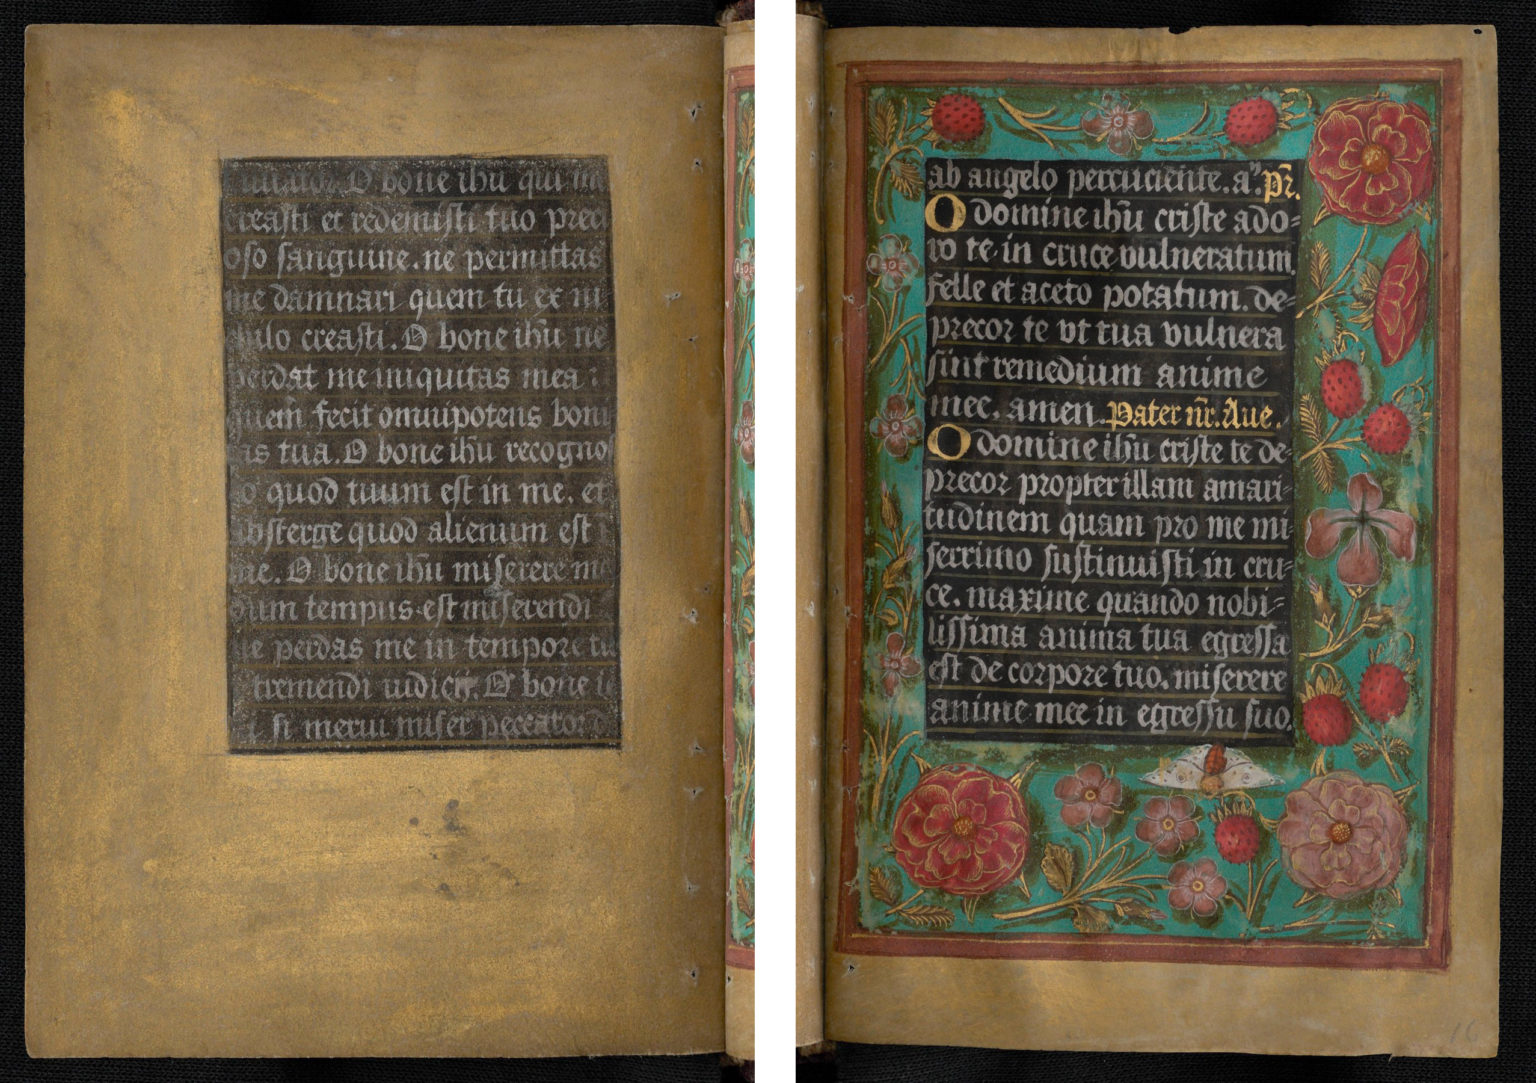 O bone ihu qui me
creasti et redemisti tuo preci
oso sanguine. ne permittas
me damnari quem tu ex ni
hilo creasti. O bone ihu ne
perdat me iniquitas mea
quem fecit omnipotens boni
as tua. O bone ihu recognos
quod tuum est in me. et
absterge quod alienum est
me. O bone ihu miserere me
dum tempus est miserendi
ne perdas me in tempore tu
tremendi iudicii. O bone i
si merui miser peccator d
ab angelo percuciente. a. pr.
O domine ihu criste ado-
ro te in cruce vulneratum.
felle et aceto potatum. de-
precor te vt tua vulnera
sint remedium anime
mee. amen. Pater nr. Aue.
O domine ihu criste te de-
precor propter illam amari-
tudinem quam pro me mi-
serrimo sustinuisti in cru-
ce. maxime quando nobi-
lissima anima tua egressa
est de corpore tuo. miserere
anime mee in egressu suo.
16